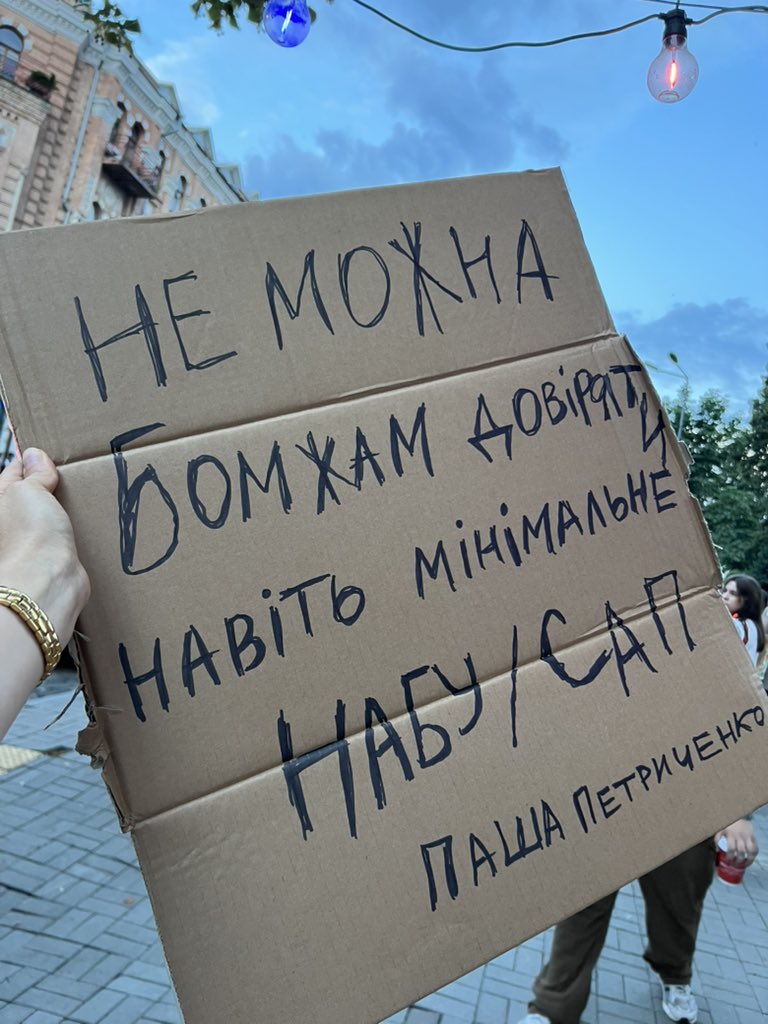 НЕ МОЖНА
БОМЖАМ ДОВІРЯТИ
НАВІТЬ МІНІМАЛЬНЕ
НАБУ/САП
ПАША ПЕТРИЧЕНКО